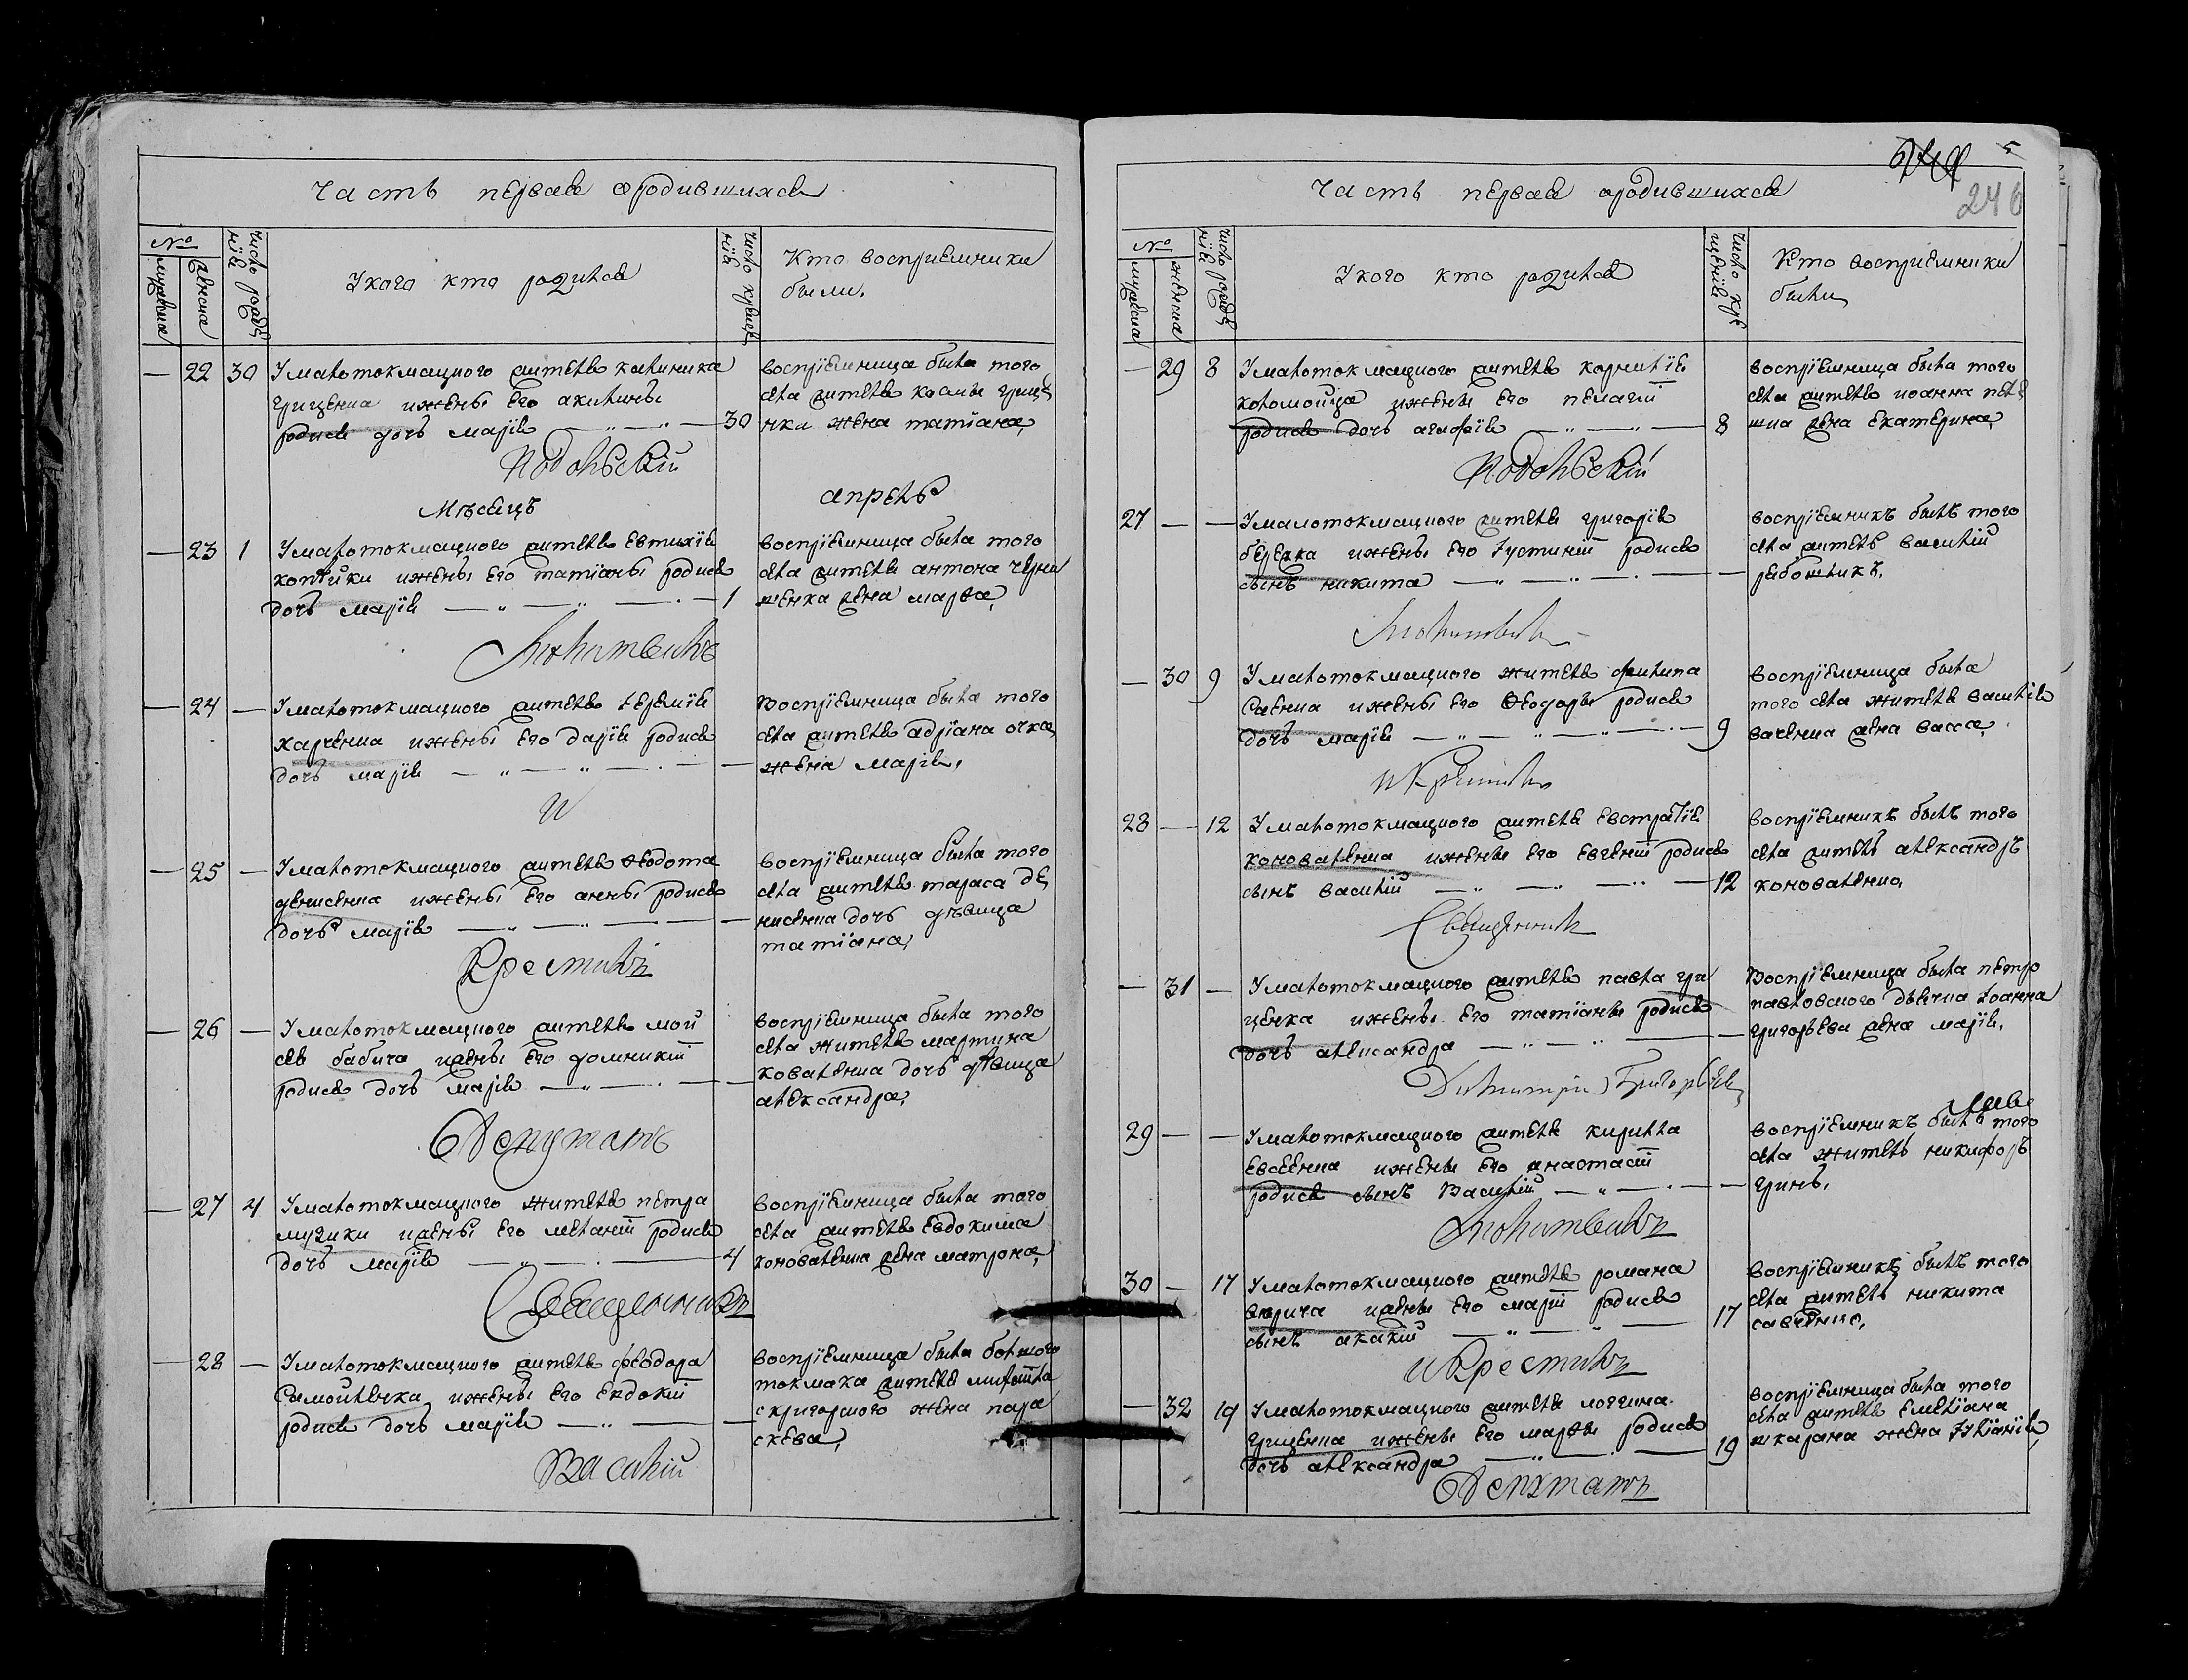 Часть первая ородившихся
№
мужеска
женска
число рожде
нія
Укого кто родился
число креще
нія
Кто воспріемники
были.
— 22 30 Умалотокмацкого жителя калиника
гриценка ижены его акилины
родися дочь марія — 30
воспріемница была того
села жителя космы грице
нка жена татіана,
Подольскій
Мѣсецъ
апрель
— 23 1 Умалотокмацкого жителя Евтихія
копѣйки ижены его татіаны родися
дочь марія — 1
воспріемница была того
села жителя антона черня
женка жена марѳа,
Люнитвикъ
— 24 — Умалотокмацкого жителя Іереміія
харченка ижены его дарія родися
дочь марія — —
Воспріемница была того
села жителя адріана очка
жена марія,
И
— 25 — Умалотокмацкого жителя Ѳеодота
денисенка ижены его анны родися
дочь марія — —
воспріемница была того
села жителя тараса де
нисенка дочь дѣвица
татіана,
Крестилъ
— 26 — Умалотокмацкого жителя мой
сея бабича ижены его домникіи
родися дочь марія — —
воспріемница была того
села жителя мартина
коваленка дочь дѣвица
александра,
Депутатъ
— 27 4 Умалотокмацкого жителя петра
музики ижены его меланіи родися
дочь марія — 4
воспріемница была того
села жителя Евдокима
коноваленка жена матрона,
Священникъ
— 28 — Умалотокмацкого жителя феодора
Самойленка ижены его Евдокіи
родися дочь марія — —
воспріемница была большого
токмака жителя михаила
скригорского жена пара
скева,
Василій
5
246
Часть первая ородившихся
№
мужеска
женска
число рожде
нія
Укого кто родился
число кре
щенія
Кто воспріемники
были
— 29 8 Умалотокмацкого жителя корнилія
коломойца ижены его пелагіи
родися дочь агафія — 8
воспріемница была того
села жителя иоанна пеле
шка жена екатерина,
Подольскій
27 — — Умалотокмацкого жителя григорія
березка ижены его Іустиніи родися
сынъ никита — —
воспріемникъ былъ того
села житель василій
рябошликъ,
30 9 Умалотокмацкого жителя филипа
Саенка ижены его Ѳеодоры родися
дочь марія — 9
воспріемница была
того села жителя василія
ваченка жена васса,
и Крестилъ
28 — 12 Умалотокмацкого жителя евстратія
коноваленка ижены его евгеніи родися
сынъ василій — 12
воспріемникъ былъ того
села житель александръ
коноваленко,
Священникъ
— 31 — Умалотокмацкого жителя павла гри
ценка ижены его татіаны родися
дочь александра — —
Воспріемница была петро
павловского дьячка Іоанна
григорьева жена марія,
Димитрій Григорьевъ
29 — — Умалотокмацкого жителя кирилла
евсеенка ижены его анастасіи
родися сынъ Василій — —
воспріемникъ былъ того
села житель никифоръ
гринь,
30 — 17 Умалотокмацкого жителя романа
вюрича ижены его маріи родися
сынъ акакій — 17
воспріемникъ былъ того
села житель никита
савченко,
и Крестилъ
— 32 19 Умалотокмацкого жителя логгина
гриценка ижены его марѳы родися
дочь александра — 19
воспріемница была того
села жителя емеліана
шкарана жена Іуліанія,
Депутатъ